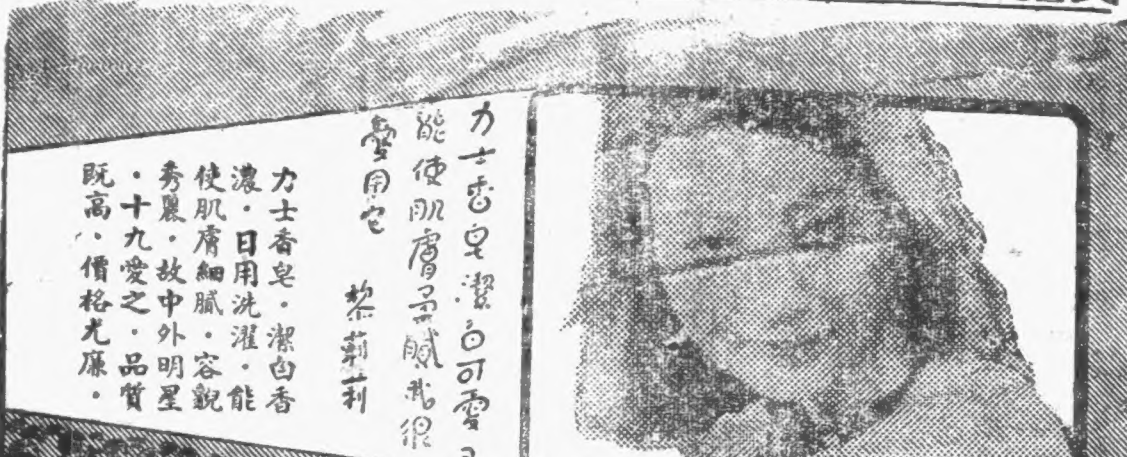 力士香皂潔白可愛
能使肌膚柔膩我很
愛用它
黎莉莉
力士香皂・潔白香
濃・日用洗濯・能
使肌膚細膩・容貌
秀麗・故中外明星
・十九愛之・品質
既高・價格尤廉・